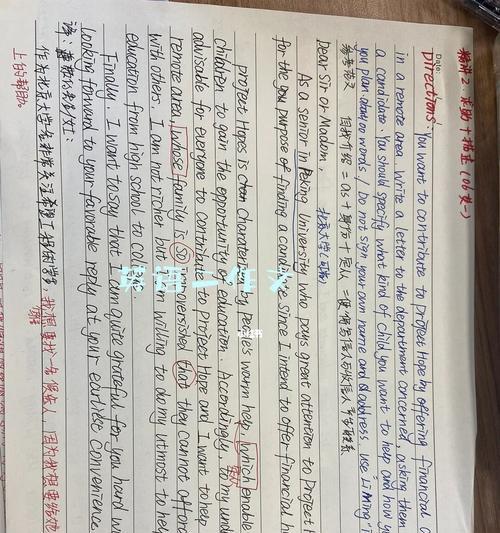 精讲2 求助+描述 (06英一)
Date:
Directions: You want to contribute to Project Hope by offering financial
in a remote area. Write a letter to the department concerned, asking them
a candidate. You should specify what kind of child you want to help and how y
you plan about 100 words / Do not sign your own name and address use "Li Ming"
参考范文 自我介绍 = as + 身份 + 定从 =
Dear Sir or Madam, 北京大学
As a senior in Peking University who pays great attention to Project
for the purpose of finding a candidate since I intend to offer financial h
Project Hopes is charaterized by people's warm help, which enable
children to gain the opportunity of education. Accordingly, to my und
advisable for everyone to contribute to Project Hope and I want to help
remote area, whose family is so impoverished that they cannot affor
with others. I am not richer but I am willing to do my utmost to help
education from high school to college.
Finally, I want to say that I am quite grateful for you hard w
Looking forward to your favorable reply at your earlike convenience
译: 尊敬的先生/女士:
作为北京大学名非常关注希望工程的学生, 我想要找一名候选人, 因为我想要给他
上的帮助.